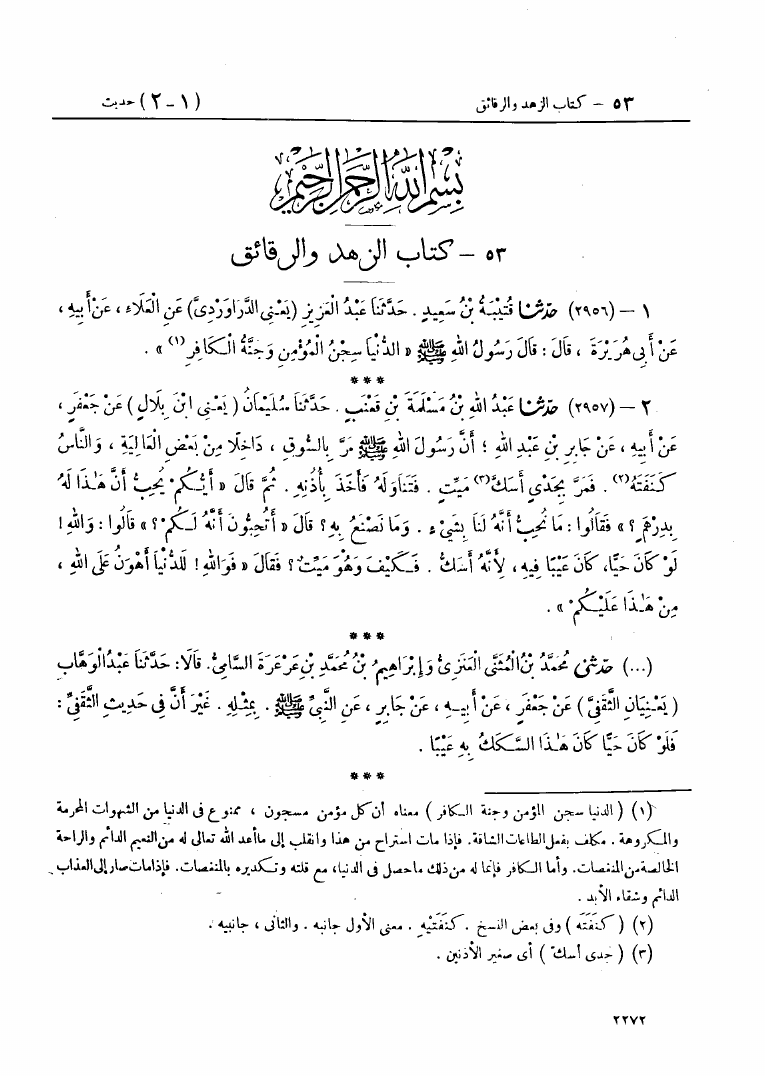 ٥٣ – كتاب الزهد والرقائق (١ – ٢) حديث
بِسْمِ اللَّهِ الرَّحْمَٰنِ الرَّحِيمِ
٥٣ – كتاب الزهد والرقائق
١ – (٢٩٥٦) حَدَّثَنَا قُتَيْبَةُ بْنُ سَعِيدٍ . حَدَّثَنَا عَبْدُ الْعَزِيزِ (يَعْنِى الدَّرَاوَرْدِىَّ) عَنِ الْعَلَاءِ ، عَنْ أَبِيهِ ،
عَنْ أَبِى هُرَيْرَةَ ، قَالَ : قَالَ رَسُولُ اللهِ ﷺ « الدُّنْيَا سِجْنُ الْمُؤْمِنِ وَجَنَّةُ الْكَافِرِ(١) » .
***
٢ – (٢٩٥٧) حَدَّثَنَا عَبْدُ اللهِ بْنُ مَسْلَمَةَ بْنِ قَعْنَبٍ . حَدَّثَنَا سُلَيْمَانُ (يَعْنِى ابْنَ بِلَالٍ) عَنْ جَعْفَرٍ ،
عَنْ أَبِيهِ ، عَنْ جَابِرِ بْنِ عَبْدِ اللهِ ؛ أَنَّ رَسُولَ اللهِ ﷺ مَرَّ بِالسُّوقِ ، دَاخِلًا مِنْ بَعْضِ الْعَالِيَةِ ، وَالنَّاسُ
كَنَفَتَهُ(٢) . فَمَرَّ بِجَدْىٍ أَسَكَّ(٣) مَيِّتٍ . فَتَنَاوَلَهُ فَأَخَذَ بِأُذُنِهِ . ثُمَّ قَالَ « أَيُّكُمْ يُحِبُّ أَنَّ هَٰذَا لَهُ
بِدِرْهَمٍ ؟ » فَقَالُوا : مَا نُحِبُّ أَنَّهُ لَنَا بِشَىْءٍ . وَمَا نَصْنَعُ بِهِ ؟ قَالَ « أَتُحِبُّونَ أَنَّهُ لَكُمْ ؟ » قَالُوا : وَاللهِ !
لَوْ كَانَ حَيًّا، كَانَ عَيْبًا فِيهِ ، لِأَنَّهُ أَسَكُّ . فَكَيْفَ وَهُوَ مَيِّتٌ ؟ فَقَالَ « فَوَاللهِ ! لَلدُّنْيَا أَهْوَنُ عَلَى اللهِ ،
مِنْ هَٰذَا عَلَيْكُمْ » .
***
(...) حَدَّثَنِى مُحَمَّدُ بْنُ الْمُثَنَّى الْعَنَزِىُّ وَإِبْرَاهِيمُ بْنُ مُحَمَّدِ بْنِ عَرْعَرَةَ السَّامِىُّ. قَالَا: حَدَّثَنَا عَبْدُ الْوَهَّابِ
(يَعْنِيَانِ الثَّقَفِىَّ) عَنْ جَعْفَرٍ ، عَنْ أَبِيهِ ، عَنْ جَابِرٍ ، عَنِ النَّبِىِّ ﷺ . بِمِثْلِهِ . غَيْرَ أَنَّ فِى حَدِيثِ الثَّقَفِىِّ :
فَلَوْ كَانَ حَيًّا كَانَ هَٰذَا السَّكَكُ بِهِ عَيْبًا .
***
(١) ( الدنيا سجن المؤمن وجنة الكافر ) معناه أن كل مؤمن مسجون ، ممنوع فى الدنيا من الشهوات المحرمة
والمكروهة . مكلف بفعل الطاعات الشاقة. فإذا مات استراح من هذا وانقلب إلى ما أعد الله تعالى له من النعيم الدائم والراحة
الخالصة من المنغصات. وأما الكافر فإنما له من ذلك ما حصل فى الدنيا، مع قلته وتكديره بالمنغصات. فإذا مات صار إلى العذاب
الدائم وشقاء الأبد .
(٢) ( كَنَفَتَه ) وفى بعض النسخ . كَنَفَتَيْهِ . معنى الأول جانبه . والثانى ، جانبيه .
(٣) ( جدى أسك ) أى صغير الأذنين .
٢٢٧٢